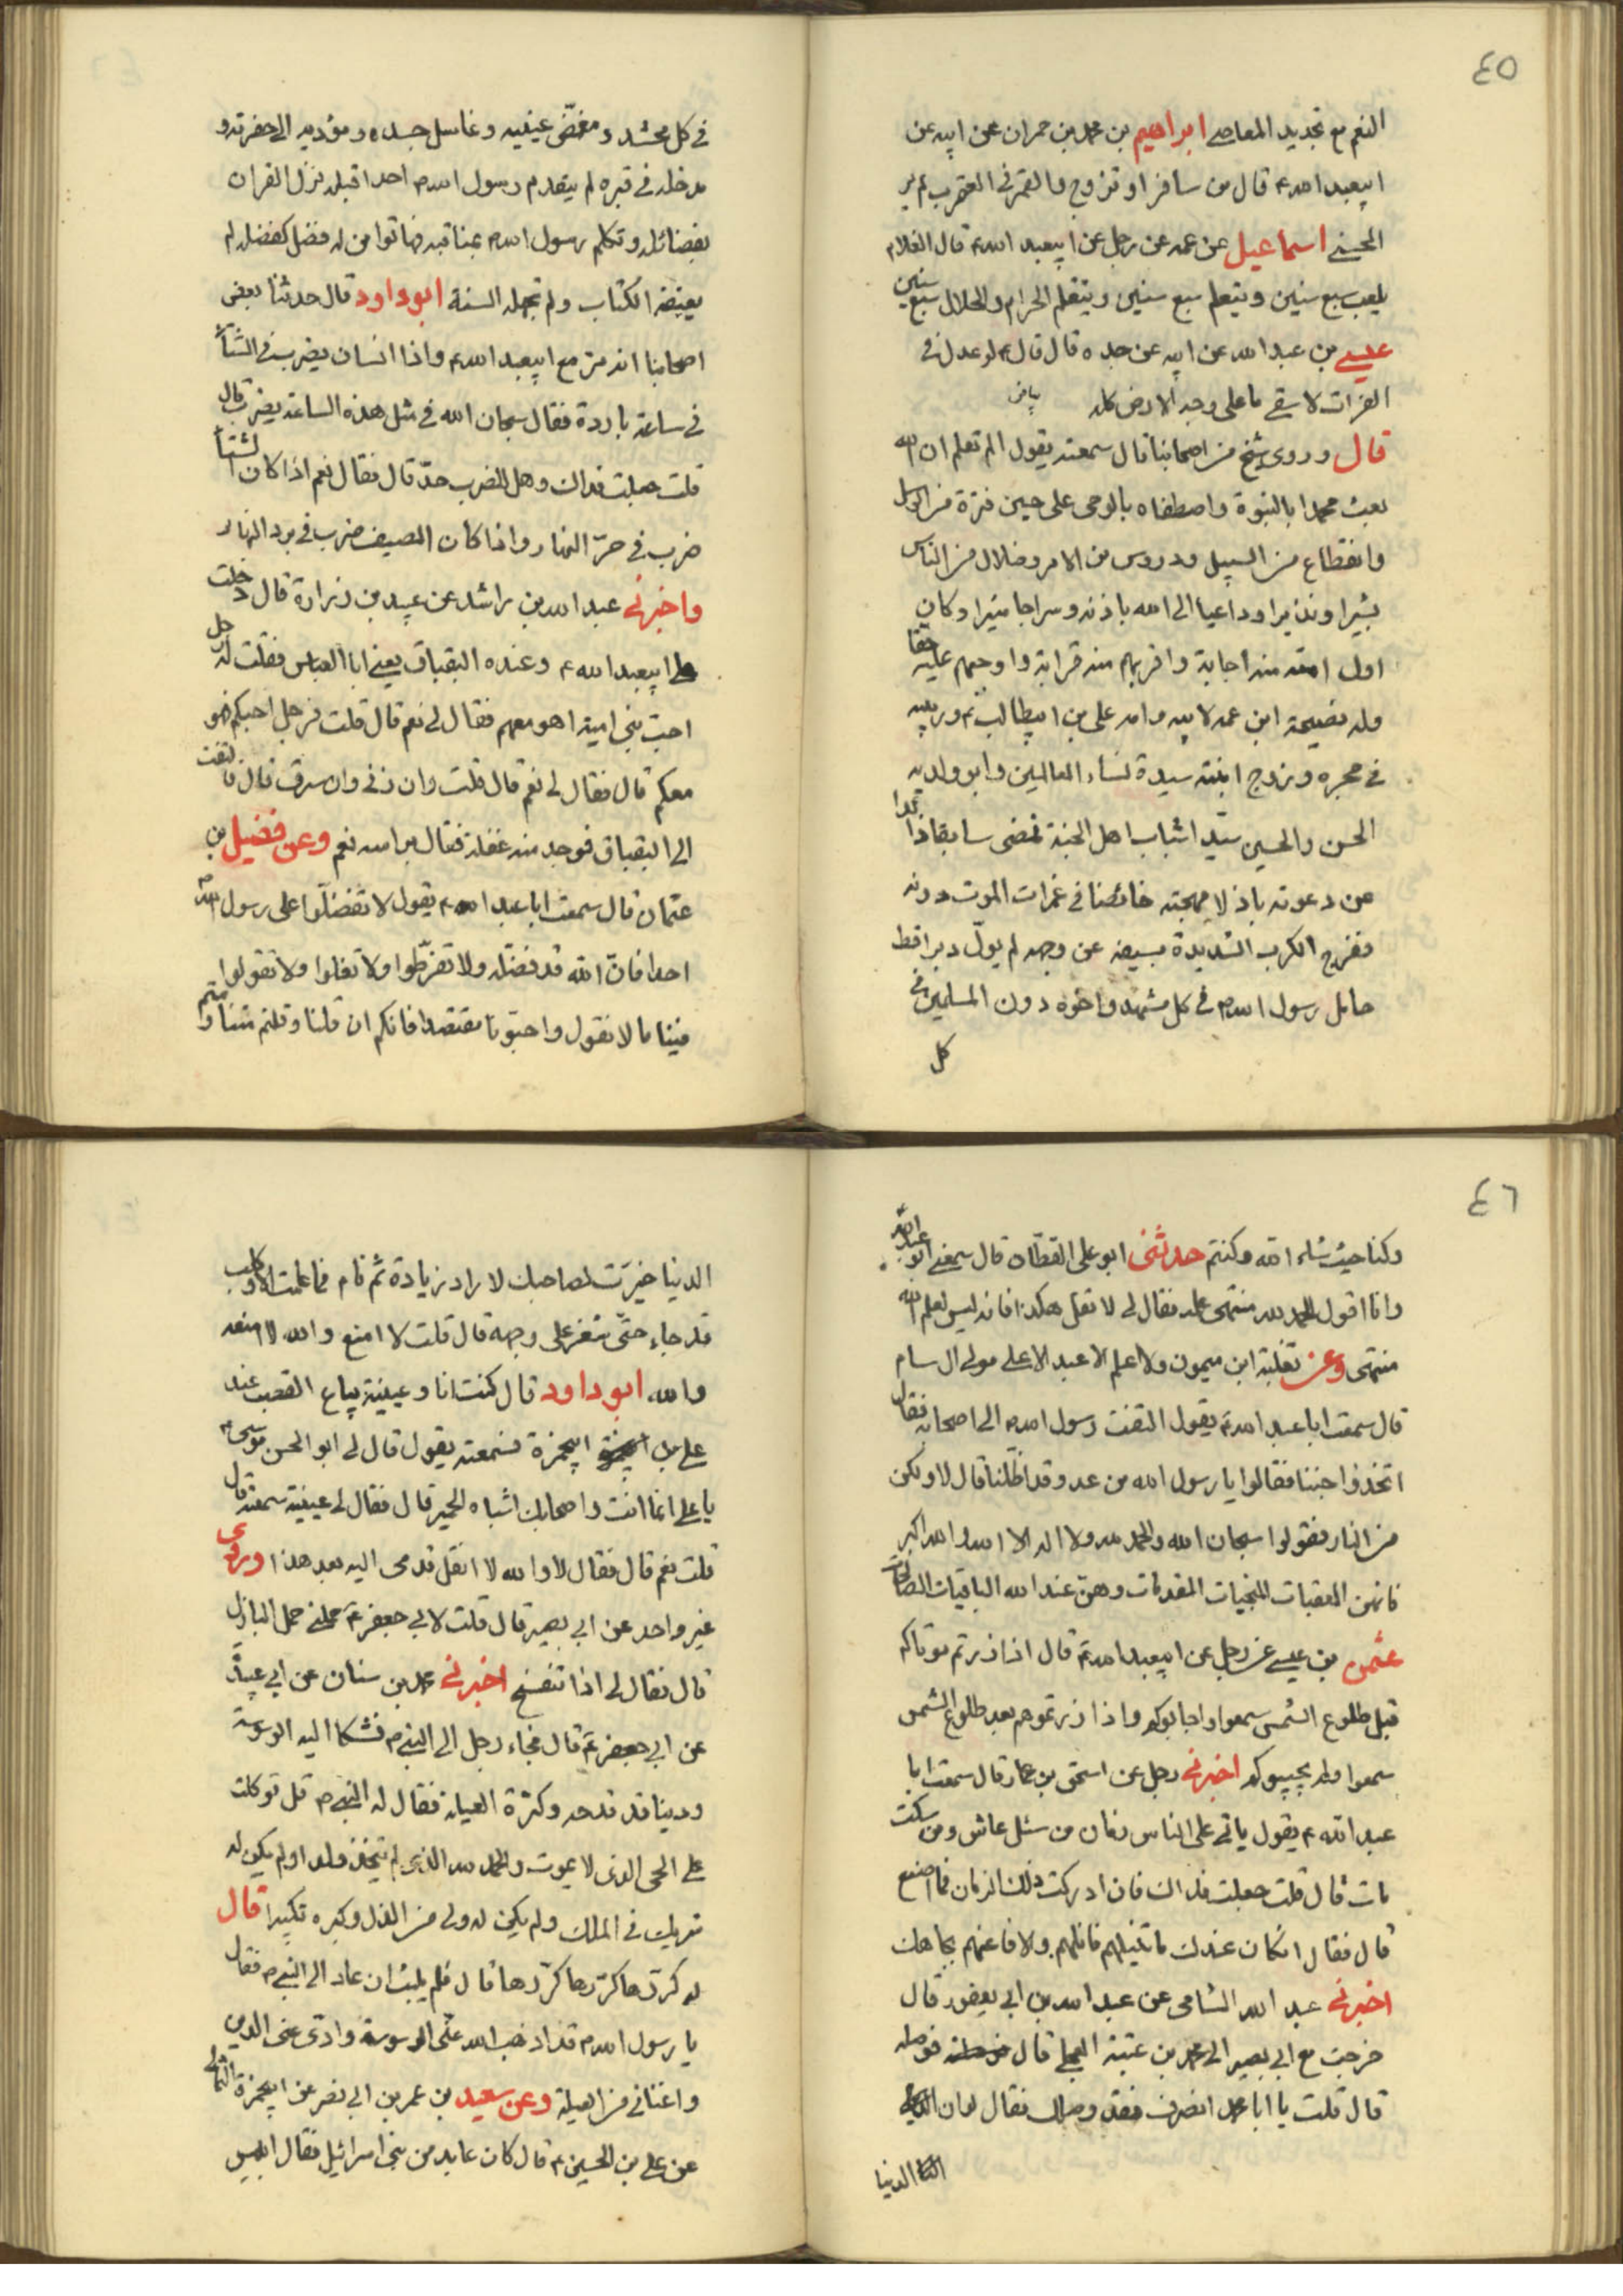 ٤٥
النعم مع تجديد المعاصي ابراهيم بن محمد بن حمران عن ابيه عن
ابيعبد الله ع قال من سافر او تزوج والقمر في العقرب لم ير
الحسنى اسماعيل عن عمه عن رجل عن ابيعبد الله ع قال الغلام
يلعب سبع سنين ويتعلم سبع سنين ويتعلم الحرام والحلال سبع سنين
عيسى بن عبد الله عن ابيه عن جده قال قال ع لو عدل في
الفرات لاسقى ما على وجه الارض كله
قال وروى شيخ من اصحابنا قال سمعته يقول الم تعلم ان الله
بعث محمدا بالنبوة واصطفاه بالوحى على حين فترة من الرسل
وانقطاع من السبيل ودروس من الامر وضلال من الناس
بشيرا ونذيرا وداعيا الى الله باذنه وسراجا منيرا وكان
اول امته منه اجابة واقربهم منه قرابة واوجبهم عليه حقا
وله نصيحة ابن عمه لابيه وامه على بن ابيطالب ع وربيبه
في حجره وزوج ابنته سيدة نساء العالمين وابو ولديه
الحسن والحسين سيدا شباب اهل الجنة تمضى سابقا ذا
عن دعوته باذلا مهجته خائضا في غمرات الموت دونه
مفرج الكرب الشديدة بسيفه عن وجهه لم يول دبرا قط
حامل رسول الله ص في كل مشهد واخوه دون المسلمين في
كل
في كل محشد ومغمض عينيه وغاسل جسده ومؤديه الى حفرته و
مدخله في قبره لم يتقدم رسول الله ص احد اقبله نزل القران
بفضائله وتكلم رسول الله ص بمناقبه فهاتوا من له فضل كفضله لم
يغيضه الكتاب ولم تجهله السنة ابو داود قال حدثنا بعض
اصحابنا انه مر مع ابيعبد الله ع واذا انسان يضرب في الشتاء
في ساعة باردة فقال سبحان الله في مثل هذه الساعة يضرب قال
قلت جعلت فداك وهل للضرب حد قال فقال نعم اذا كان الشتاء
ضرب في حر النهار واذا كان الصيف ضرب في برد النهار
واخبرنى عبد الله بن راشد عن عبيد بن زرارة قال دخلت
على ابيعبد الله ع وعنده البقباق يعنى ابا العباس فقلت له رجل
احب بنى امية اهو معهم فقال لى نعم قال قلت فرجل احبكم هو
معكم قال فقال لى نعم قال قلت وان زنى وان سرق قال فالتفت
الى البقباق فوجد منه غفلة فقال براسه نعم وعن فضيل بن
عثمان قال سمعت ابا عبد الله ع يقول لا تفضلوا على رسول الله ص
احدا فان الله قد فضله ولا تفرطوا ولا تغلوا ولا تقولوا
فينا ما لا نقول واحبونا مقتصدا فانكم ان قلنا وقلتم متنا ومتم
٤٦
وكنا حيث شاء الله وكنتم حدثنى ابو على القطان قال سمعنى ابو عبد الله ع
وانا اقول الحمد لله منتهى علمه فقال لى لا تقل هكذا فانه ليس لعلم الله
منتهى وعن ثعلبة ابن ميمون ولا اعلم الا عبد الاعلى مولى ال سام
قال سمعت ابا عبد الله ع يقول التفت رسول الله ص الى اصحابه فقال
اتخذوا جننا فقالوا يا رسول الله من عدو قد اظلنا قال لا ولكن
من النار فقولوا سبحان الله والحمد لله ولا اله الا الله والله اكبر
فانهن المعقبات المنجيات المقدمات وهن عند الله الباقيات الصالحات
عثمن بن عيسى عن رجل عن ابيعبد الله ع قال اذا زرتم موتاكم
قبل طلوع الشمس سمعوا واجابوكم واذا زرتموهم بعد طلوع الشمس
سمعوا ولم يجيبوكم اخبرنى رجل عن اسحق بن عمار قال سمعت ابا
عبد الله ع يقول ياتى على الناس زمان من سئل عاش ومن سكت
مات قال قلت جعلت فداك فان ادركت ذلك الزمان فما اصنع
قال فقال ان كان عندك ما تنيلهم فانلهم ولا فاعنهم بجاهك
اخبرنى عبد الله الشامى عن عبد الله بن ابى يعفور قال
خرجت مع ابى بصير الى محمد بن عتبة العجلى قال فوصله
قال قلت يا ابا محمد انصرف فقد وصلك فقال لو ان
الدنيا
الدنيا خيرت لصاحبك لاراد زيادة ثم قام فما علمت الا وكلب
قد جاء حتى شغر على وجهه قال قلت لا امنع والله لا امنعه
والله ابو داود قال كنت انا وعيينة بياع القصب عند
على بن ابيحمزة فسمعته يقول قال لى ابو الحسن موسى ع
يا على انما انت واصحابك اشباه الحمير قال فقال لى عيينة سمعته قال
قلت نعم قال فقال لا والله لا انقل قدمى اليه بعد هذا وروى
غير واحد عن ابى بصير قال قلت لابى جعفر ع حملنى حمل البازل
قال فقال لى اذا تنفسخ اخبرنى محمد بن سنان عن ابى عبيدة
عن ابى جعفر ع قال فجاء رجل الى النبى ص فشكا اليه الوسوسة
ودينا قد فدحه وكثرة العيلة فقال له النبى ص قل توكلت
على الحى الذى لا يموت والحمد لله الذى لم يتخذ ولدا ولم يكن له
شريك في الملك ولم يكن له ولى من الذل وكبره تكبيرا قال
له كررها كررها كررها قال فلم يلبث ان عاد الى النبى ص فقال
يا رسول الله ص قد اذهب الله عنى الوسوسة وادى عنى الدين
واغنانى من العيلة وعن سعيد بن عمر بن ابى نصر عن ابيحمزة الثمالى
عن على بن الحسين ع قال كان عابد من بنى اسرائيل فقال ابليس